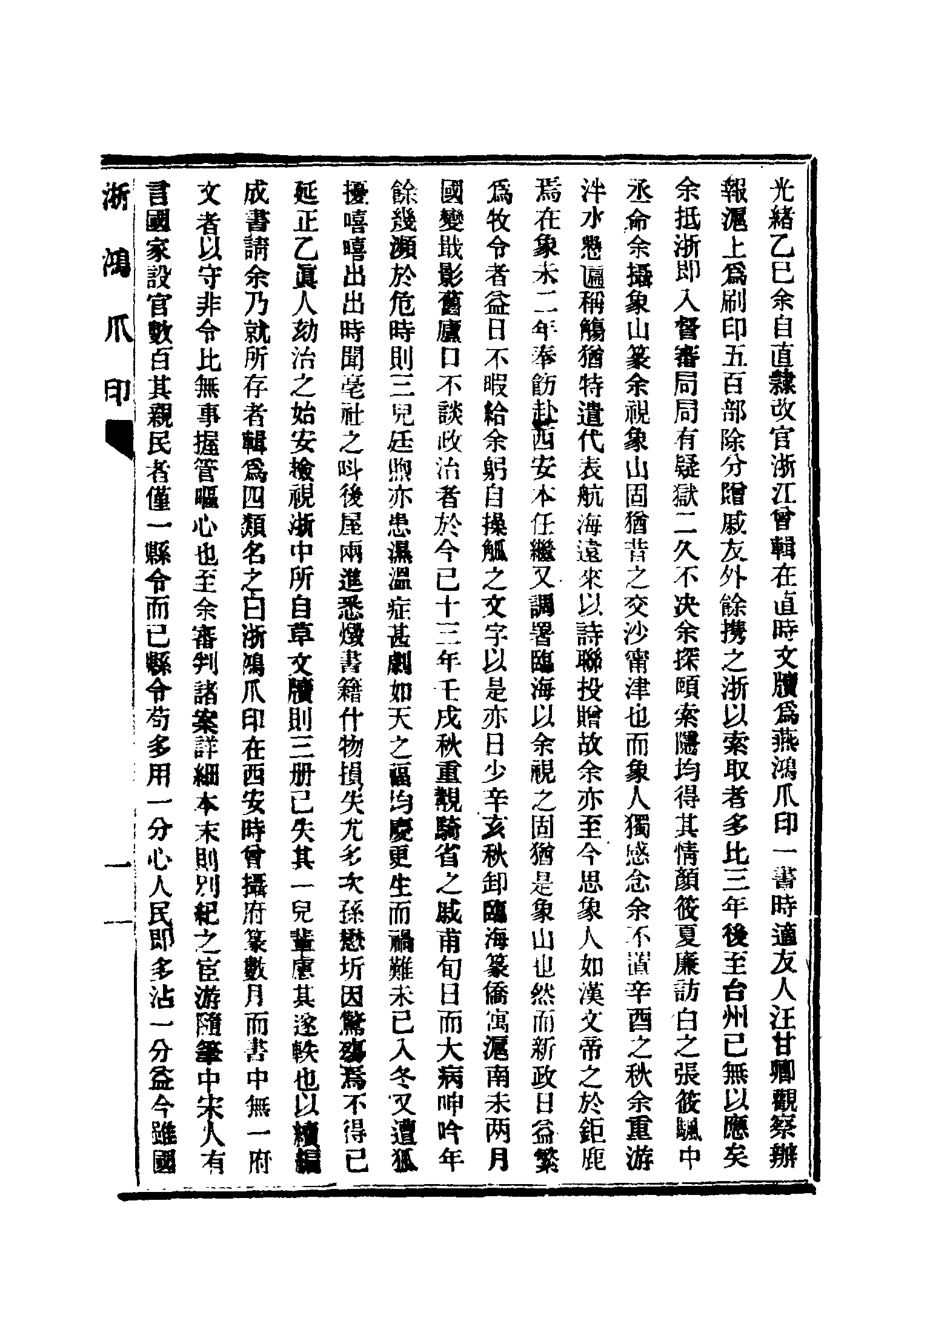 光緒乙巳余自直隸改官浙江曾輯在直時文牘爲燕鴻爪印一書時適友人汪甘卿觀察辦
報滬上爲刷印五百部除分贈戚友外餘携之浙以索取者多比三年後至台州已無以應矣
余抵浙即入督審局局有疑獄二久不决余探頤索隱均得其情顏筱夏廉訪白之張筱颿中
丞命余攝象山篆余視象山固猶昔之交沙甯津也而象人獨感念余不置辛酉之秋余重游
泮水懇遍稱觴猶特遣代表航海遠來以詩聯投贈故余亦至今思象人如漢文帝之於鉅鹿
焉在象未二年奉飭赴西安本任繼又調署臨海以余視之固猶是象山也然而新政日益繁
爲牧令者益日不暇給余躬自操觚之文字以是亦日少辛亥秋卸臨海篆僑寓滬南未两月
國變戢影舊廬口不談政治者於今已十三年壬戌秋重觀騎省之戚甫旬日而大病呻吟年
餘幾瀕於危時則三兒廷煦亦患濕溫症甚劇如天之福均慶更生而禍難未已入冬又遭狐
擾嘻嘻出出時聞亳社之呌後屋兩進悉燬書籍什物損失尤多次孫懋圻因驚殤焉不得已
延正乙眞人劾治之始安檢視浙中所自草文牘則三册已失其一兒輩慮其遂軼也以續編
成書請余乃就所存者輯爲四類名之曰浙鴻爪印在西安時曾攝府篆數月而書中無一府
文者以守非令比無事握管嘔心也至余審判諸案詳細本末則別紀之宦游隨筆中宋人有
言國家設官數百其親民者僅一縣令而已縣令苟多用一分心人民即多沾一分益今雖國
浙鴻爪印
一